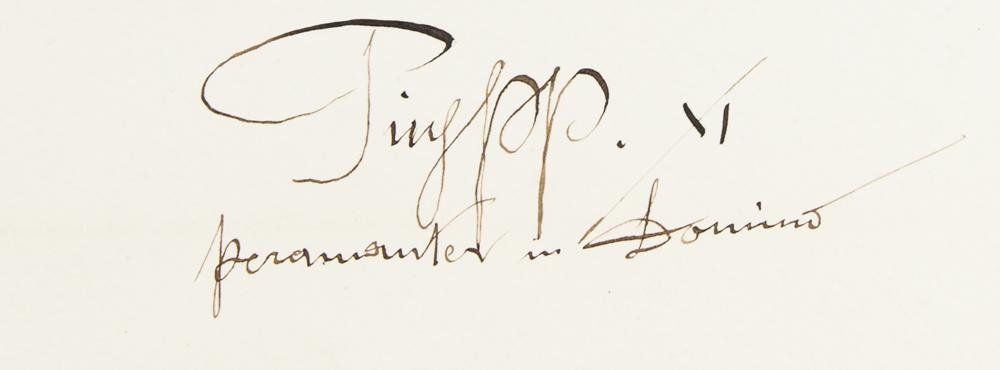 Pius PP. XI
peramanter in Domino